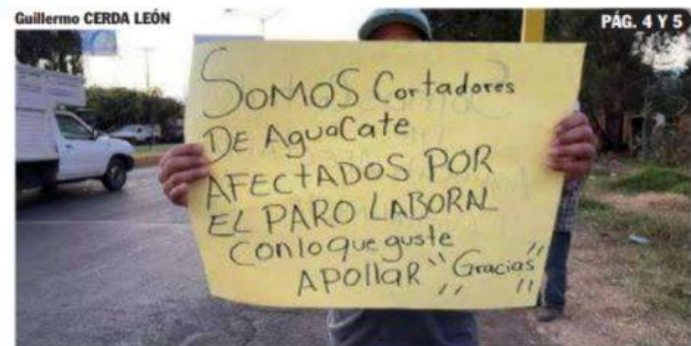 Guillermo CERDA LEÓN
PÁG. 4 Y 5
SOMOS Cortadores
DE AguaCate
AFECTADOS POR
EL PARO LABORAL
Con lo que guste
APOllAR "Gracias"